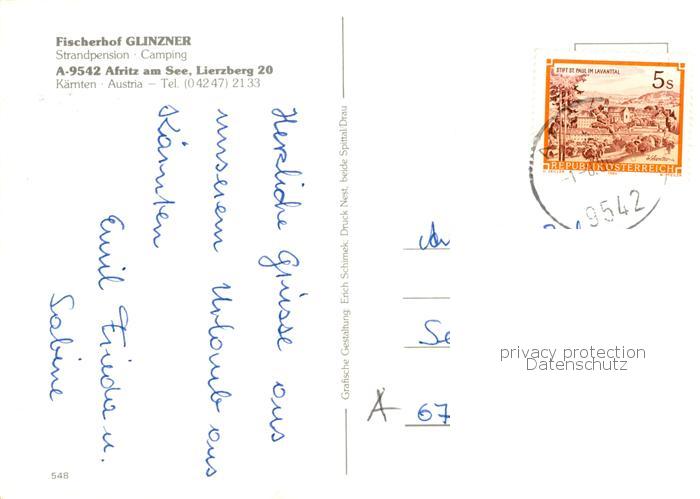 Fischerhof GLINZNER
Strandpension · Camping
A-9542 Afritz am See, Lierzberg 20
Kärnten · Austria – Tel. (0 42 47) 21 33
Herzliche Grüsse aus
unserem Urlaub aus
Kärnten
Emil Frieda u.
Sabine
548
Grafische Gestaltung Erich Schimek. Druck Nest, beide Spittal/Drau
STIFT ST. PAUL IM LAVANTTAL
5s
REPUBLIK ÖSTERREICH
9542
An
Se
A 67
privacy protection
Datenschutz